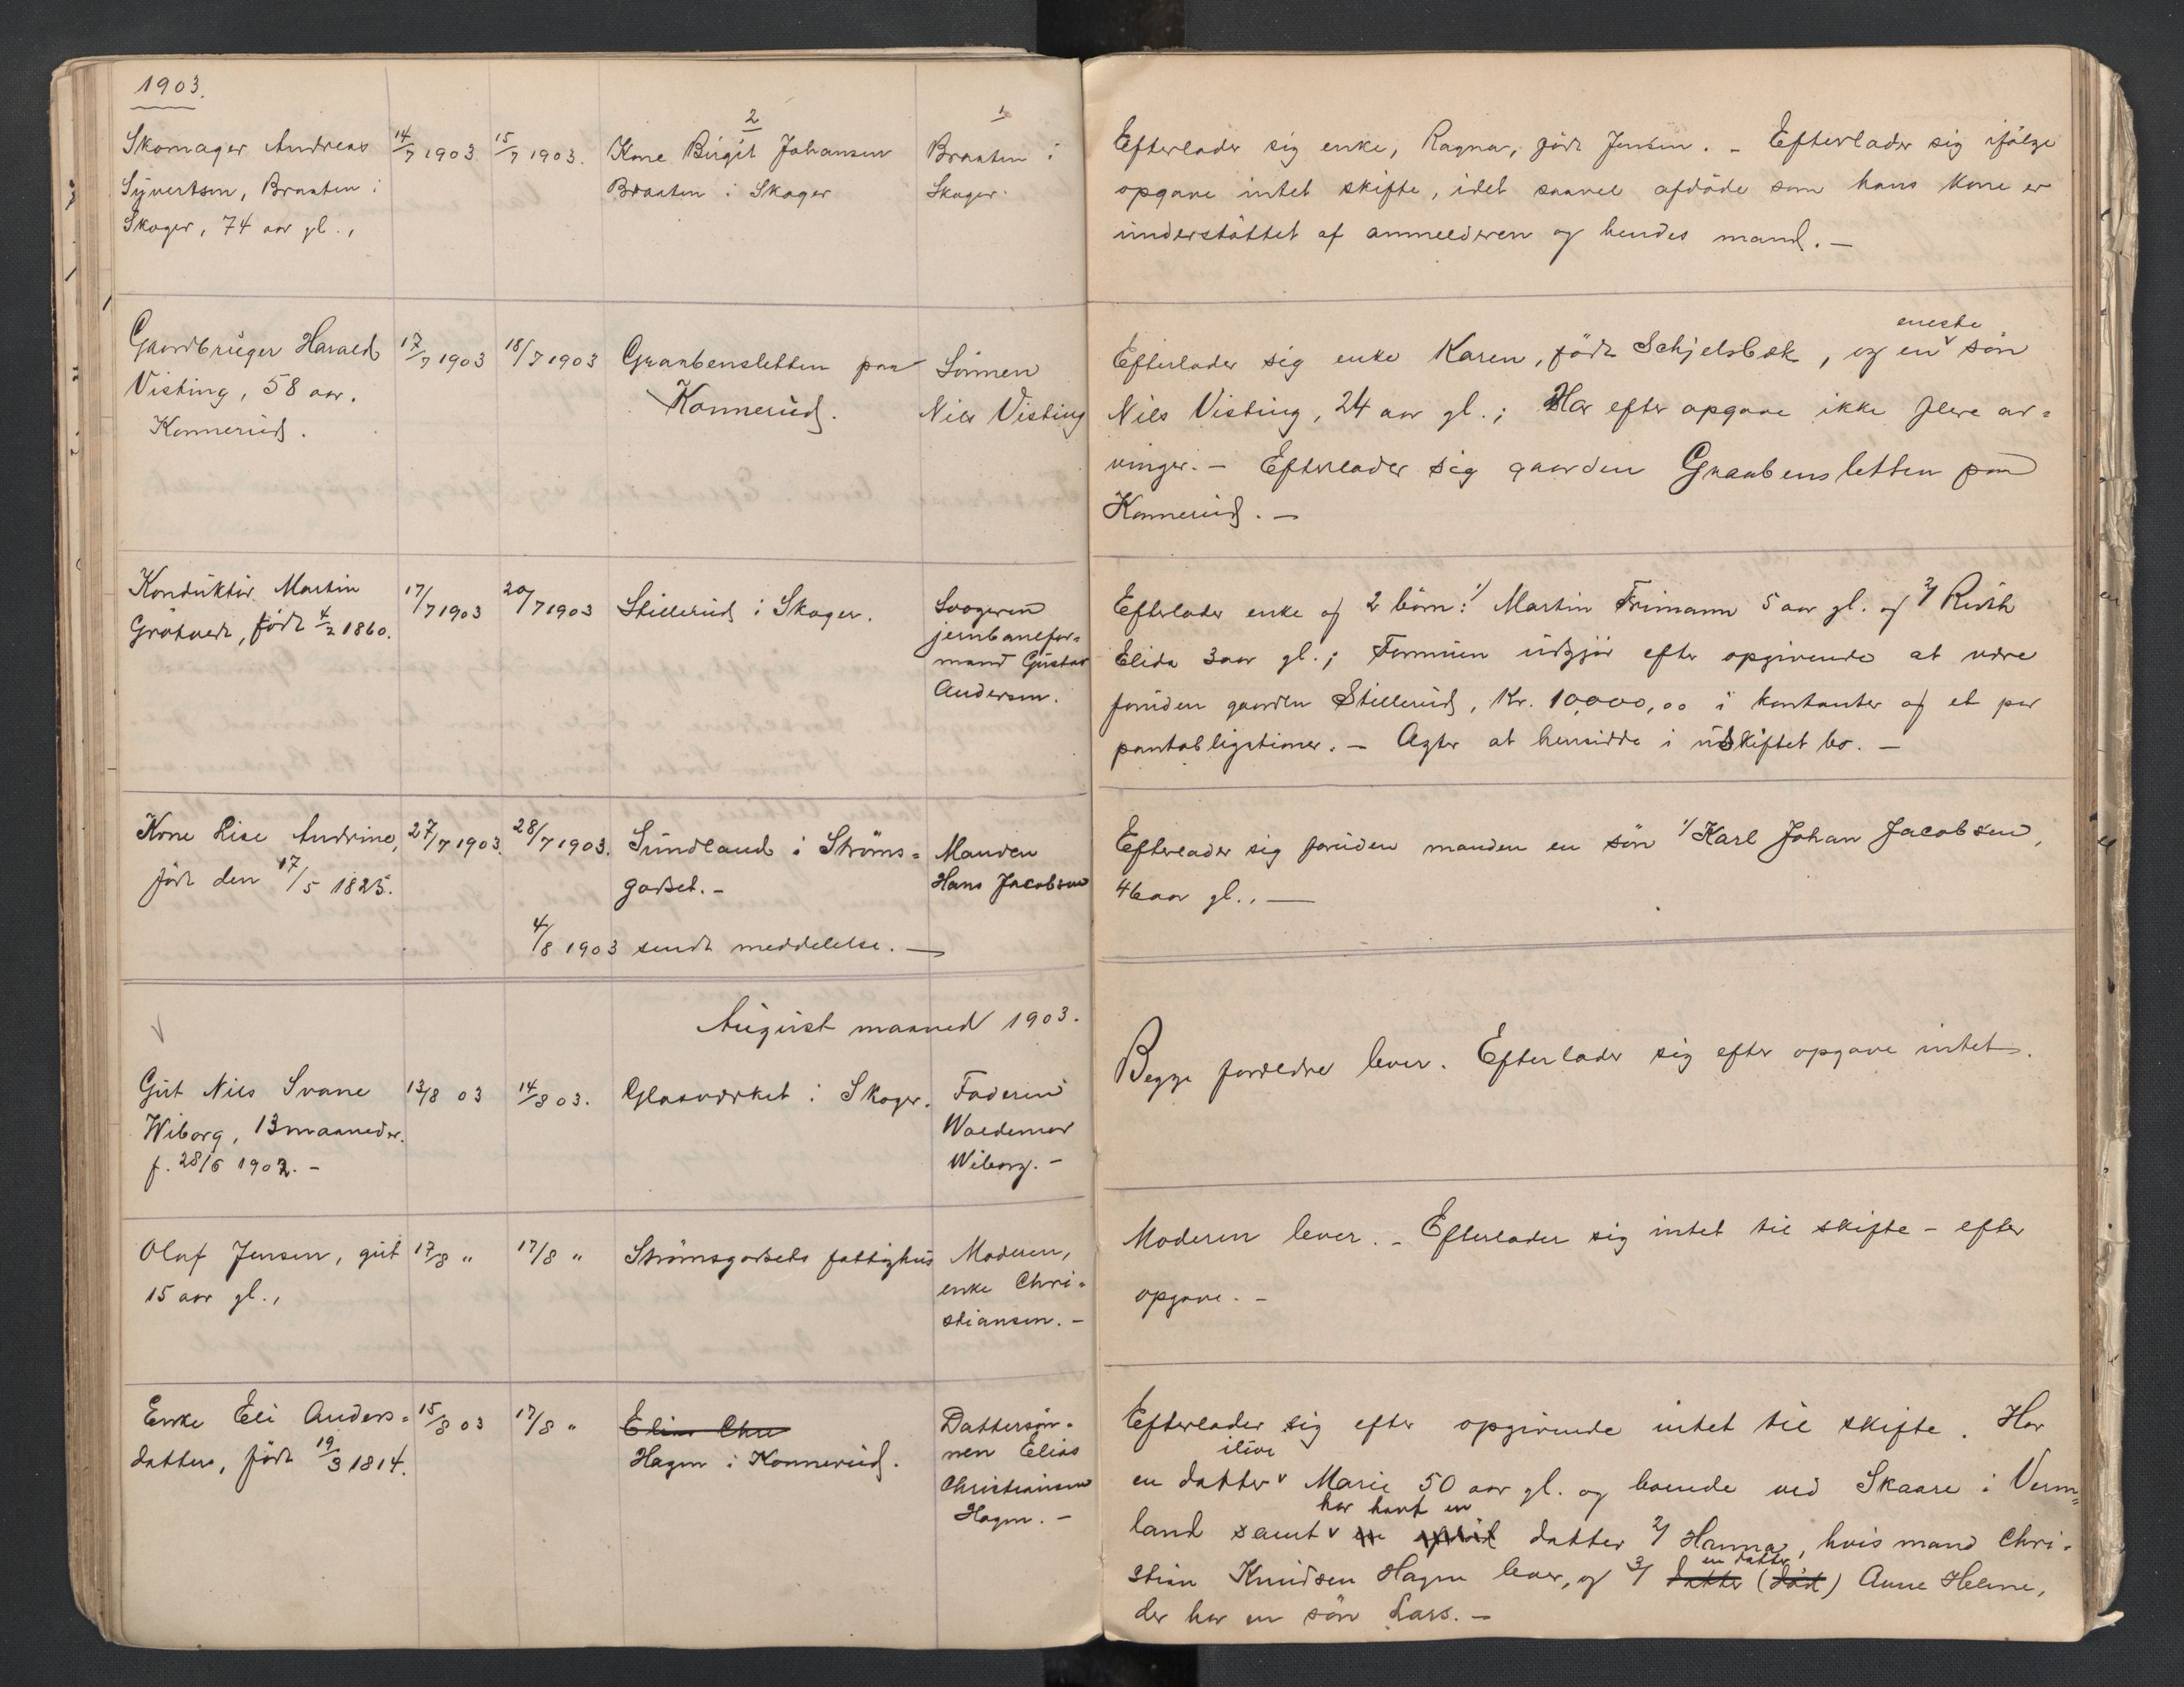 1903.
Skomager Andreas
Syvertsen, Braaten i
Skoger, 74 aar gl.,
14/7 1903
15/7 1903.
2
Kone Birgit Johansen
Braaten i Skoger
1
Braaten i
Skoger.
Efterlader sig enke, Ragna, født Jensen. - Efterlader sig ifølge
opgave intet skifte, idet saavel afdøde som hans kone er
understøttet af anmelderen og hendes mand. —
Gaardbruger Harald
Visting, 58 aar.
Konnerud.
17/7 1903
18/7 1903
Graabensletten paa
Konnerud.
Sønnen
Nils Visting
eneste
Efterlader sig enke Karen, født Schjelsbæk, og en v søn
Nils Visting, 24 aar gl.; Har efter opgave ikke flere ar=
vinger. - Efterlader sig gaarden Graabensletten paa
Konnerud. —
Konduktør Martin
Grøtvedt, født 4/2 1860.
17/7 1903
20/7 1903
Stillerud i Skoger.
Svogeren
jernbanefor=
mand Gustav
Andersen.
Efterlader enke og 2 børn: 1/ Martin Frimann 5 aar gl. og 2/ Ruth
Elida 3 aar gl.; Formuen udgjør efter opgivende at være
foruden gaarden Stillerud, Kr. 10,000,00 i kontanter og et par
pantobligationer. — Agter at hensidde i uskiftet bo. —
Kone Lise Andrine,
født den 17/5 1825.
27/7 1903.
28/7 1903.
Sundland i Strøms=
godset. -
Manden
Hans Jacobsen
4/8 1903 sendt meddelelse. —
Efterlader sig foruden manden en søn 1/ Karl Johan Jacobsen,
46 aar gl., —
August maaned 1903.
Gut Nils Svane
Wiborg, 13 maaneder.
f. 28/6 1902. -
13/8 03
14/8 03.
Glasværket i Skoger.
Faderen
Waldemar
Wiborg. -
Begge forældre lever. Efterlader sig efter opgave intet.
Olaf Jensen, gut
15 aar gl.,
17/8 "
17/8 "
Strømsgodsets fattighus
Moderen,
enke Chri=
stiansen. -
Moderen lever. - Efterlader sig intet til skifte - efter
opgave. -
Enke Eli Anders=
datter, født 19/3 1814.
15/8 03
17/8 "
Elias Chr
Hagen i Konnerud.
Dattersøn=
nen Elias
Christiansen
Hagen. -
Efterlader sig efter opgivende intet til skifte. Har
ilive
en datter v Marie 50 aar gl. og boende ved Skaare i Verm=
har havt en
land samt v en datter 2/ Hanna, hvis mand Chri=
en datter,
stian Knudsen Hagen lever, og 3/ datter (død) Anne Helene,
der har en søn Lars. —